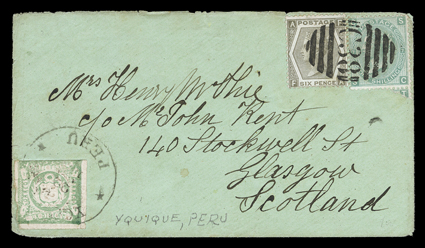 POSTAGE
SIX PENCE
A
F
S
C
C39
Mrs Henry McPhie
c/o Mr John Kent
140 Stockwell St
Glasgow
Scotland
PERU
YQUIQUE, PERU